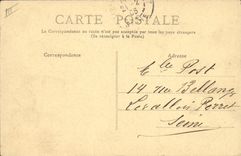 CARTE POSTALE
La Correspondance au recto n'est pas acceptée par tous les pays étrangers
(Se renseigner à la Poste)
Correspondance
Adresse
Cte Post
14 rue Bellanger
Levallois Perret
Seine